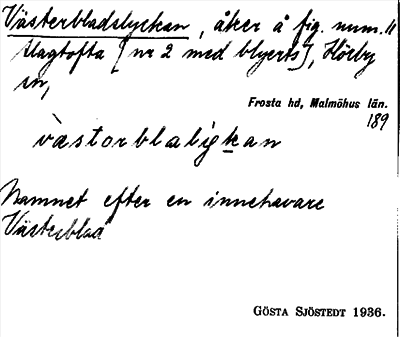 Västerbladslyckan, åker å fig. num. 11
Slagtofta [nr 2 med blyerts], Hörby
sn,
Frosta hd, Malmöhus län.
189
västorblaligkan
Namnet efter en innehavare
Västerblad
GÖSTA SJÖSTEDT 1936.